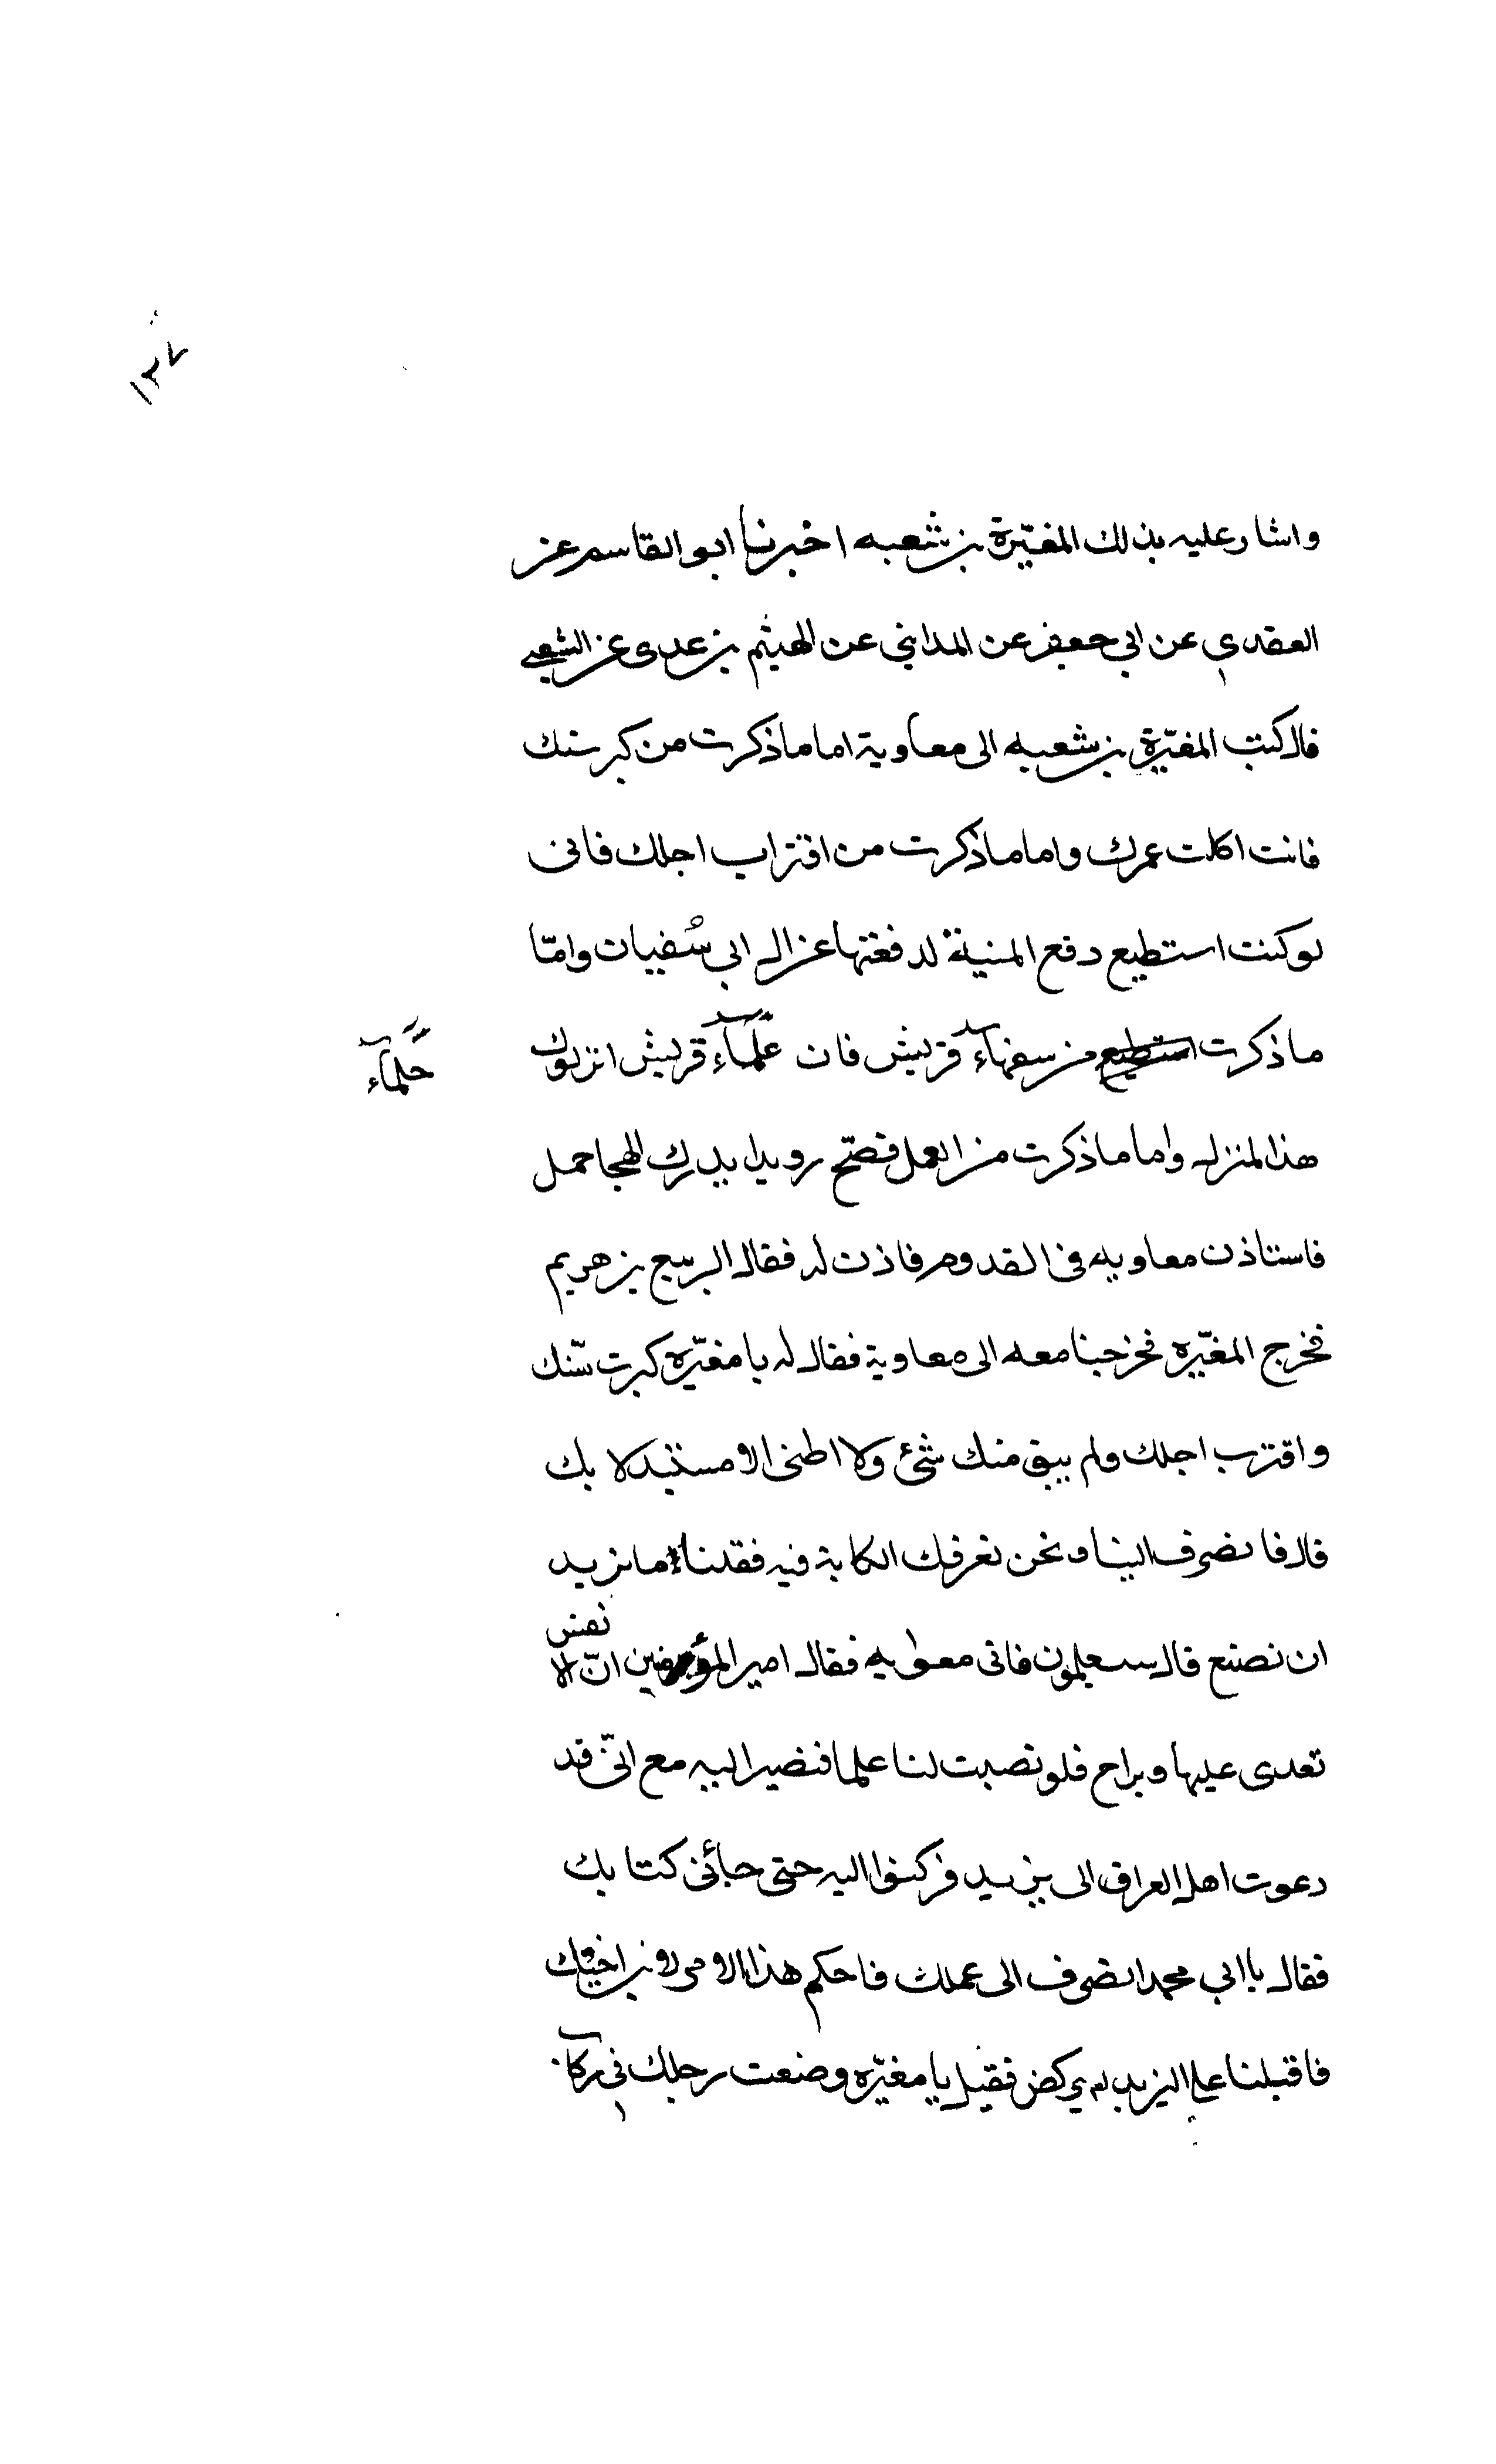 ١٣٧
واشار عليه بذلك المغيّرة بن شعبه اخبرنا ابو القاسم عن
العقدى عن ابي جعفر عن المدايني عن الهيثم بن عدى عن الشعبي
قال كتب المغيّرة بن شعبه الى معاوية اما ما ذكرت من كبر سنك
فانت اكلت عمرك واما ما ذكرت من اقتراب اجلك فانى
لو كنت استطيع دفع المنية لدفعتها عن ال ابي سُفيان وامّا
ما ذكرت من سفهاء قريش فان علماء قريش انزلوك
حلماء
هذا المنزل واما ما ذكرت من العمل فضحّ رويدا يدرك الهيجا حمل
فاستاذن معاويه فى القدوم فاذن له فقال الربيع بن هريم
فخرج المغيّره فخرجنا معه الى معاوية فقال له يا مغيّرة كبرت سنّك
واقترب اجلك ولم يبق منك شئ ولا اظنى الا مستبدلا بك
قال فانصرف الينا ونحن نعرف الكابة فيه فقلنا ما تريد
ان نصنع قال ستعلمون فاتى معويه فقال امير المؤمنين انّ الا
نفس
تغدى عليها ويراح فلو نصبت لنا علما فنصير اليه مع انّى قد
دعوت اهل العراق الى يزيد فركنوا اليه حتى جائنى كتابك
فقال يا ابي محمد انصرف الى عملك فاحكم هذا الامر لابن اخيك
فاقبلنا على البريد نركض فقيل يا مغيّره وضعت رجلك فى ركاب